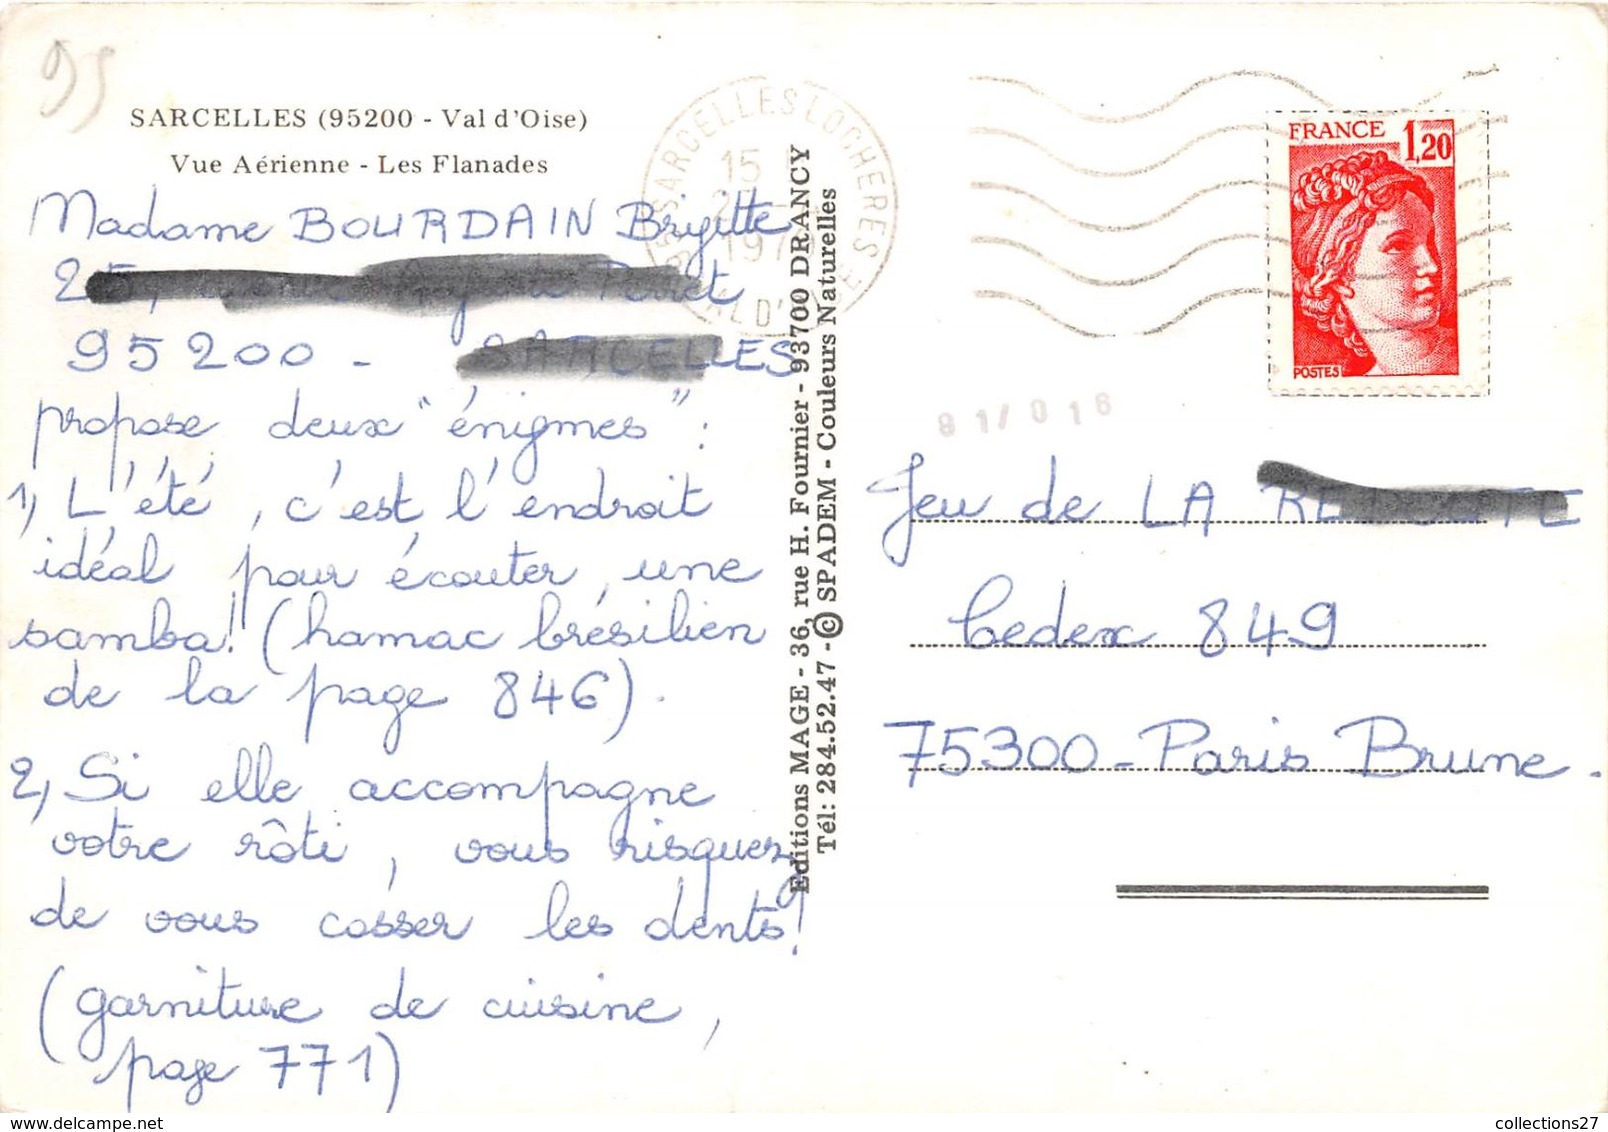 95
SARCELLES (95200 - Val d'Oise)
Vue Aérienne - Les Flanades
Madame BOURDAIN Brigitte
25,
95200 - SARCELLES
propose deux "énigmes":
1) L'été, c'est l'endroit
idéal pour écouter une
samba! (hamac brésilien
de la page 846).
2) Si elle accompagne
votre rôti, vous risquez
de vous casser les dents!
(garniture de cuisine,
page 771)
Editions MAGE - 36, rue H. Fournier - 93700 DRANCY
Tél: 284.52.47 - © SPADEM - Couleurs Naturelles
SARCELLES LOCHERES
15
VAL D'OISE
FRANCE 1,20
POSTES
91/016
Jeu de LA
Cedex 849
75300 - Paris Brune.
collections27